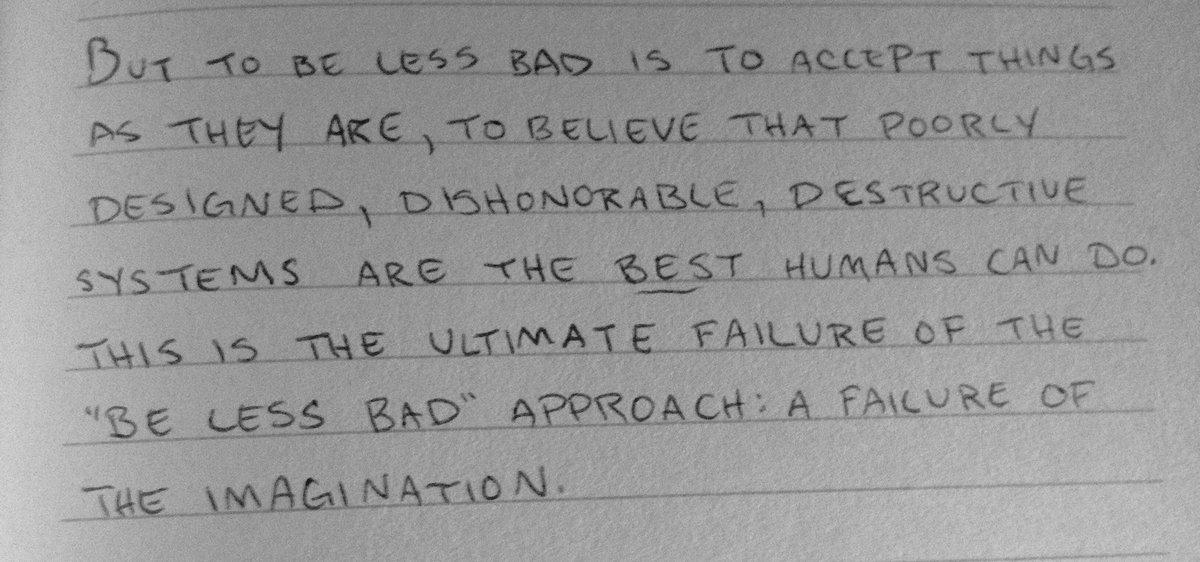 BUT TO BE LESS BAD IS TO ACCEPT THINGS
AS THEY ARE, TO BELIEVE THAT POORLY
DESIGNED, DISHONORABLE, DESTRUCTIVE
SYSTEMS ARE THE BEST HUMANS CAN DO.
THIS IS THE ULTIMATE FAILURE OF THE
"BE LESS BAD" APPROACH: A FAILURE OF
THE IMAGINATION.